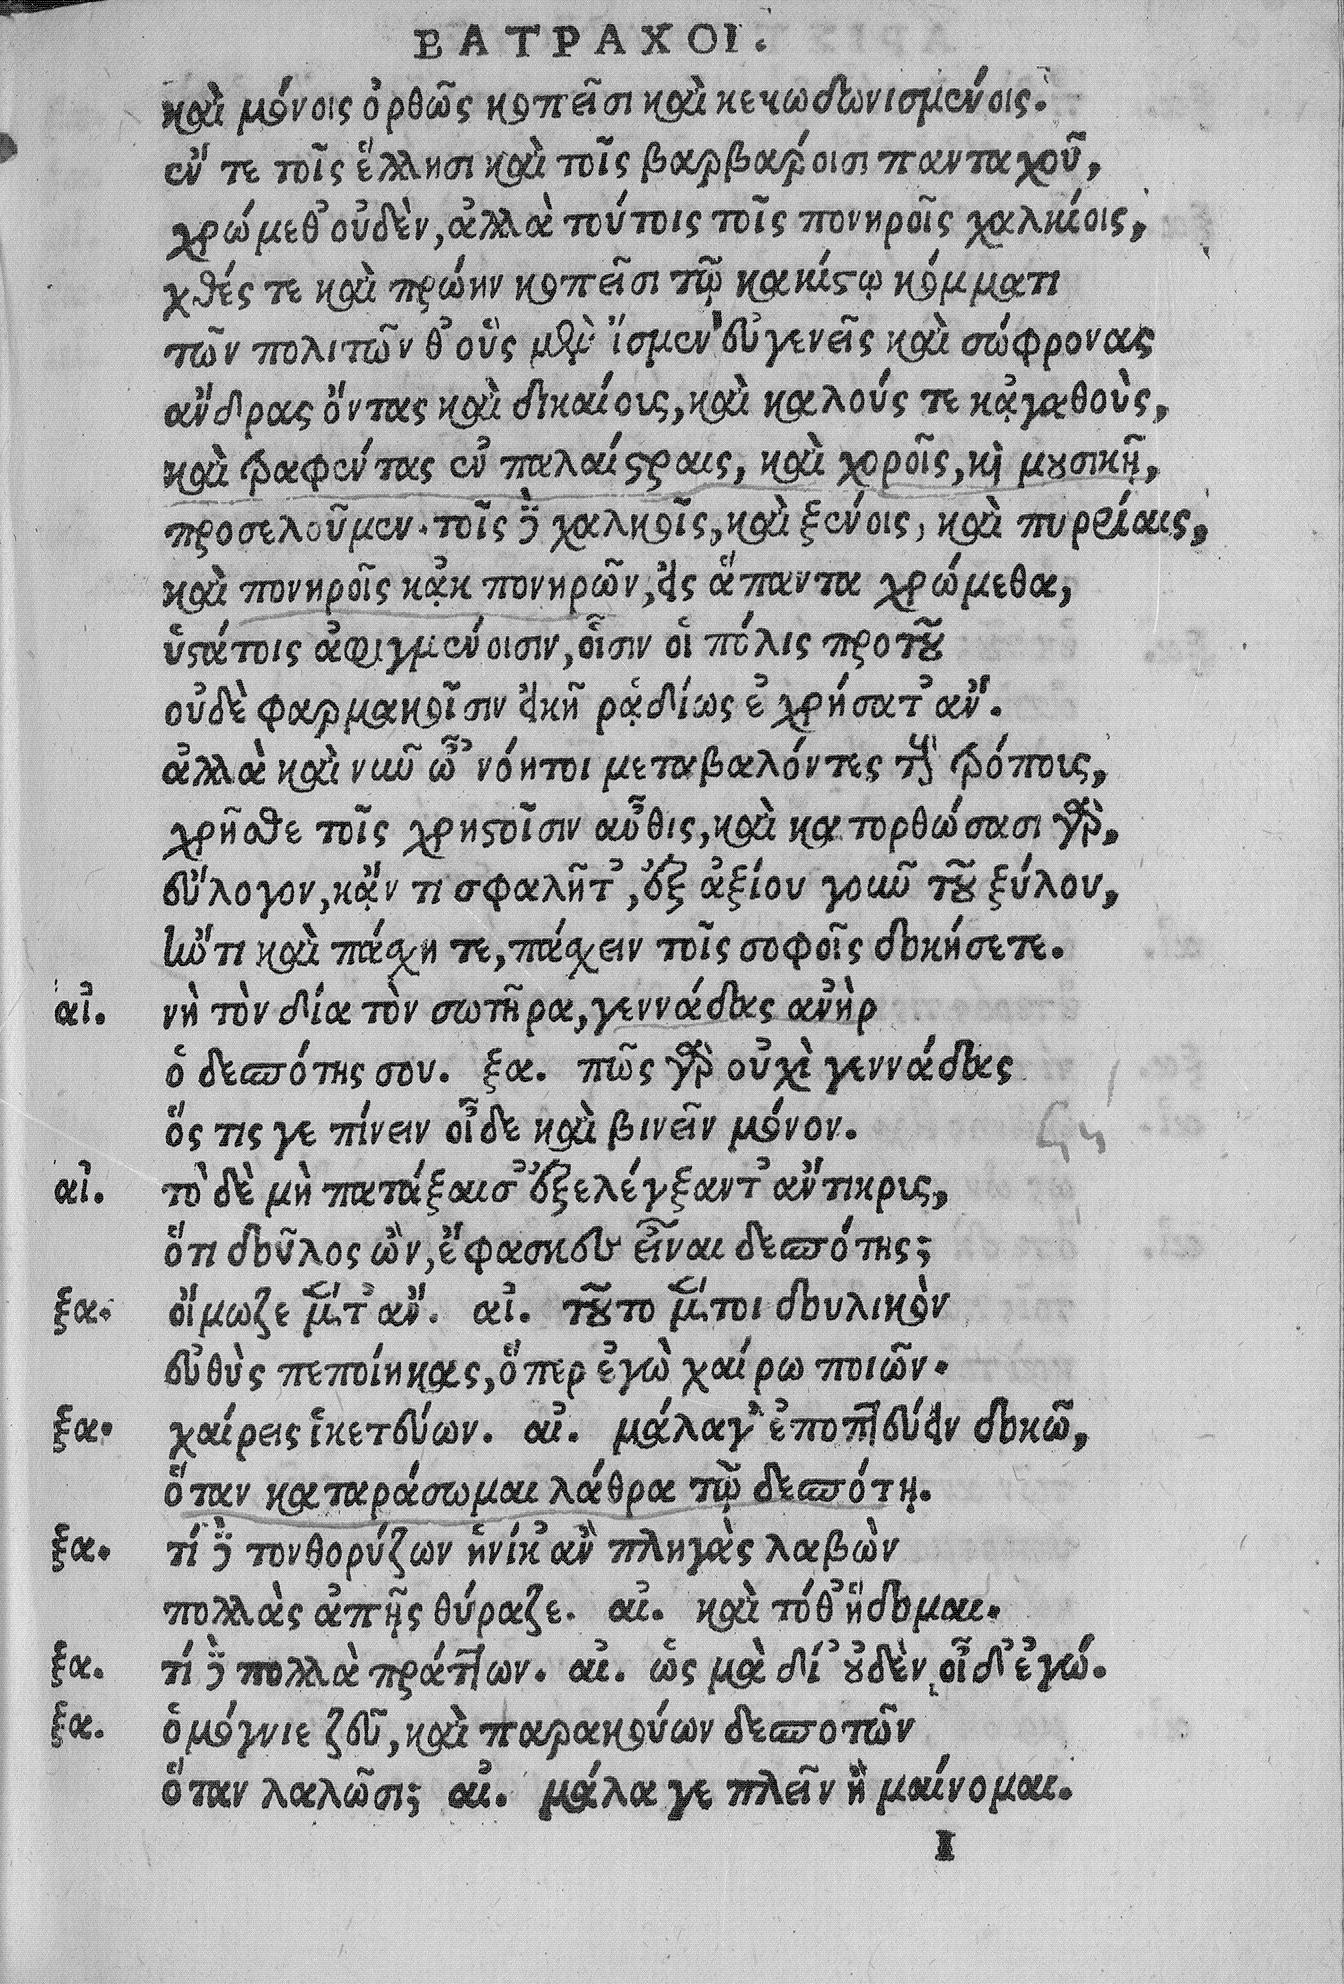 ΒΑΤΡΑΧΟΙ.
καὶ μόνοις ὀρθῶς κοπεῖσι καὶ κεκωδωνισμένοις.
ἔν τε τοῖς ἕλλησι καὶ τοῖς βαρβάροισι πανταχοῦ,
χρώμεθ' οὐδὲν, ἀλλὰ τούτοις τοῖς πονηροῖς χαλκίοις,
χθές τε καὶ πρώην κοπεῖσι τῷ κακίστῳ κόμματι
τῶν πολιτῶν θ' οὓς μὲν ἴσμεν εὐγενεῖς καὶ σώφρονας
ἄνδρας ὄντας καὶ δικαίους, καὶ καλούς τε κᾀγαθοὺς,
καὶ τραφέντας ἐν παλαίστραις, καὶ χοροῖς, καὶ μουσικῇ,
προσελοῦμεν· τοῖς δὲ χαλκοῖς, καὶ ξένοις, καὶ πυρρίαις,
καὶ πονηροῖς κᾀκ πονηρῶν, εἰς ἅπαντα χρώμεθα,
ὑστάτοις ἀφιγμένοισιν, οἷσιν οἱ πόλις προτοῦ
οὐδὲ φαρμακοῖσιν εἰκῆ ρᾳδίως ἐχρήσατ' ἄν.
ἀλλὰ καὶ νῦν ὦ 'νόητοι μεταβαλόντες τοὺς τρόπους,
χρῆσθε τοῖς χρηστοῖσιν αὖθις, καὶ κατορθώσασι γὰρ,
εὔλογον, κᾄν τι σφαλῆτ', ἐξ ἀξίου γοῦν τοῦ ξύλου,
ἤν τι καὶ πάσχητε, πάσχειν τοῖς σοφοῖς δοκήσετε.
αἰ. νὴ τὸν δία τὸν σωτῆρα, γεννάδας ἀνὴρ
ὁ δεσπότης σου. ξα. πῶς γὰρ οὐχὶ γεννάδας
ὅς τις γε πίνειν οἶδε καὶ βινεῖν μόνον.
αἰ. τὸ δὲ μὴ πατάξαι σ' ἐξελέγξαντ' ἄντικρυς,
ὅτι δοῦλος ὢν, ἔφασκες εἶναι δεσπότης;
ξα. οἴμωζε μέντ' ἄν. αἰ. τοῦτο μέντοι δουλικὸν
εὐθὺς πεποίηκας, ὅπερ ἐγὼ χαίρω ποιῶν.
ξα. χαίρεις ἱκετεύων. αἰ. μάλα γ' ἐποπτεύειν δοκῶ,
ὅταν καταράσωμαι λάθρα τῷ δεσπότῃ.
ξα. τί δὲ τονθορύζων ἡνίκ' ἂν πληγὰς λαβὼν
πολλὰς ἀπῇς θύραζε. αἰ. καὶ τόθ' ἥδομαι.
ξα. τί δὲ πολλὰ πράττων. αἰ. ὡς μὰ δί' οὐδὲν οἶδ' ἐγώ.
ξα. ὁμόγνιε ζεῦ, καὶ παρακούων δεσποτῶν
ὅταν λαλῶσι; αἰ. μάλα γε πλεῖν ἢ μαίνομαι.
I